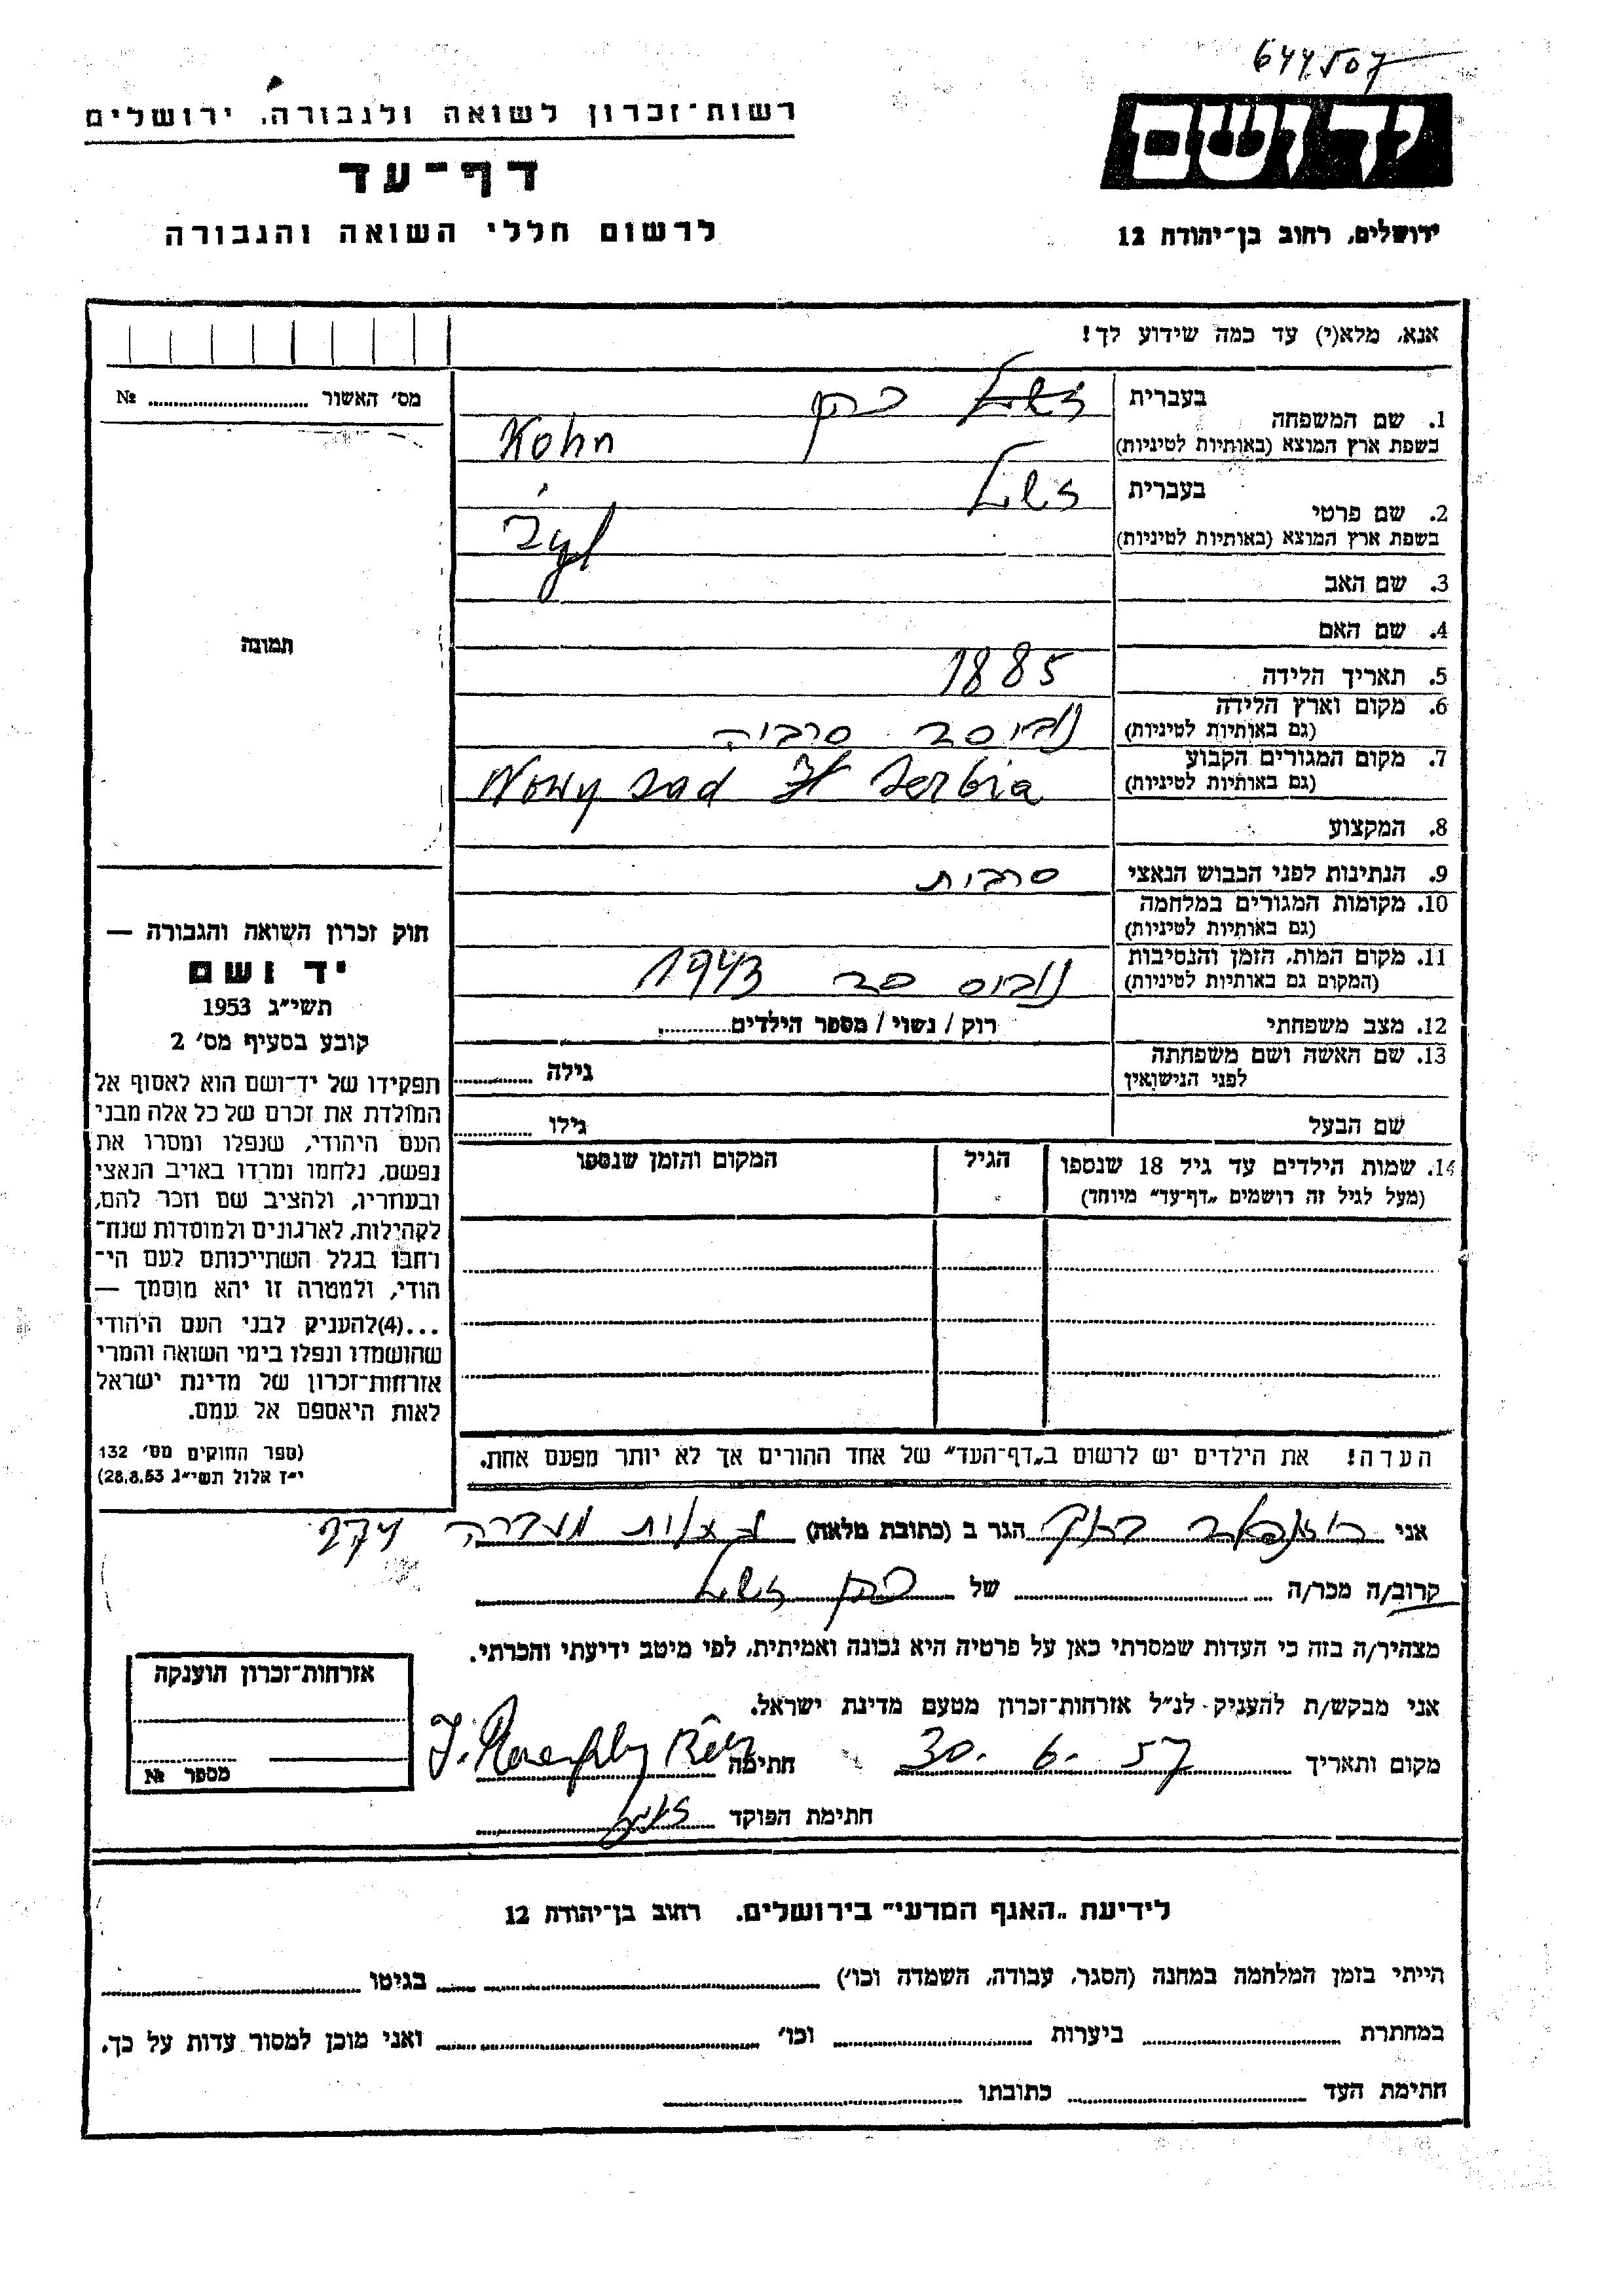 644507
ידושם
ירושלים, רחוב בן־יהודה 12
רשות־זכרון לשואה ולגבורה, ירושלים
דף־עד
לרשום חללי השואה והגבורה
אנא, מלא(י) עד כמה שידוע לך!
מס׳ האשור № ..........
1. שם המשפחה
בעברית כהן
בשפת ארץ המוצא (באותיות לטיניות) Kohn
2. שם פרטי
בעברית
בשפת ארץ המוצא (באותיות לטיניות)
3. שם האב
4. שם האם
5. תאריך הלידה 1885
6. מקום וארץ הלידה נוביסד סרביה
(גם באותיות לטיניות)
7. מקום המגורים הקבוע Nowy sad Serbia
(גם באותיות לטיניות)
8. המקצוע
9. הנתינות לפני הכבוש הנאצי סרבית
10. מקומות המגורים במלחמה
(גם באותיות לטיניות)
11. מקום המות, הזמן והנסיבות נוביס סד 1943
(המקום גם באותיות לטיניות)
12. מצב משפחתי רוק / נשוי / מספר הילדים..........
13. שם האשה ושם משפחתה
לפני הנישואין
גילה ..........
שם הבעל גילו ..........
14. שמות הילדים עד גיל 18 שנספו הגיל המקום והזמן שנספו
(מעל לגיל זה רושמים „דף־עד״ מיוחד)
תמונה
חוק זכרון השואה והגבורה —
יד ושם
תשי״ג 1953
קובע בסעיף מס׳ 2
תפקידו של יד־ושם הוא לאסוף אל
המולדת את זכרם של כל אלה מבני
העם היהודי, שנפלו ומסרו את
נפשם, נלחמו ומרדו באויב הנאצי
ובעוזריו, ולהציב שם וזכר להם,
לקהילות, לארגונים ולמוסדות שנח־
רחבו בגלל השתייכותם לעם הי־
הודי, ולמטרה זו יהא מוסמך —
...(4)להעניק לבני העם היהודי
שהושמדו ונפלו בימי השואה והמרי
אזרחות־זכרון של מדינת ישראל
לאות היאספם אל עמם.
(ספר החוקים מס׳ 132
י״ז אלול תשי״ג 28.8.53)
הערה! את הילדים יש לרשום ב„דף־העד״ של אחד ההורים אך לא יותר מפעם אחת.
אני הגר ב (כתובת מלאה) 274
קרוב/ה מכר/ה .......... של כהן
מצהיר/ה בזה כי העדות שמסרתי כאן על פרטיה היא נכונה ואמיתית, לפי מיטב ידיעתי והכרתי.
אני מבקש/ת להעניק לנ״ל אזרחות־זכרון מטעם מדינת ישראל.
מקום ותאריך 30. 6. 57 חתימה
חתימת הפוקד
אזרחות־זכרון הוענקה
מספר №
לידיעת „האגף המדעי״ בירושלים, רחוב בן־יהודה 12
הייתי בזמן המלחמה במחנה (הסגר, עבודה, השמדה וכו׳) .......... בגיטו ..........
במחתרת .......... ביערות .......... וכו׳ .......... ואני מוכן למסור עדות על כך.
חתימת העד .......... כתובתו ..........